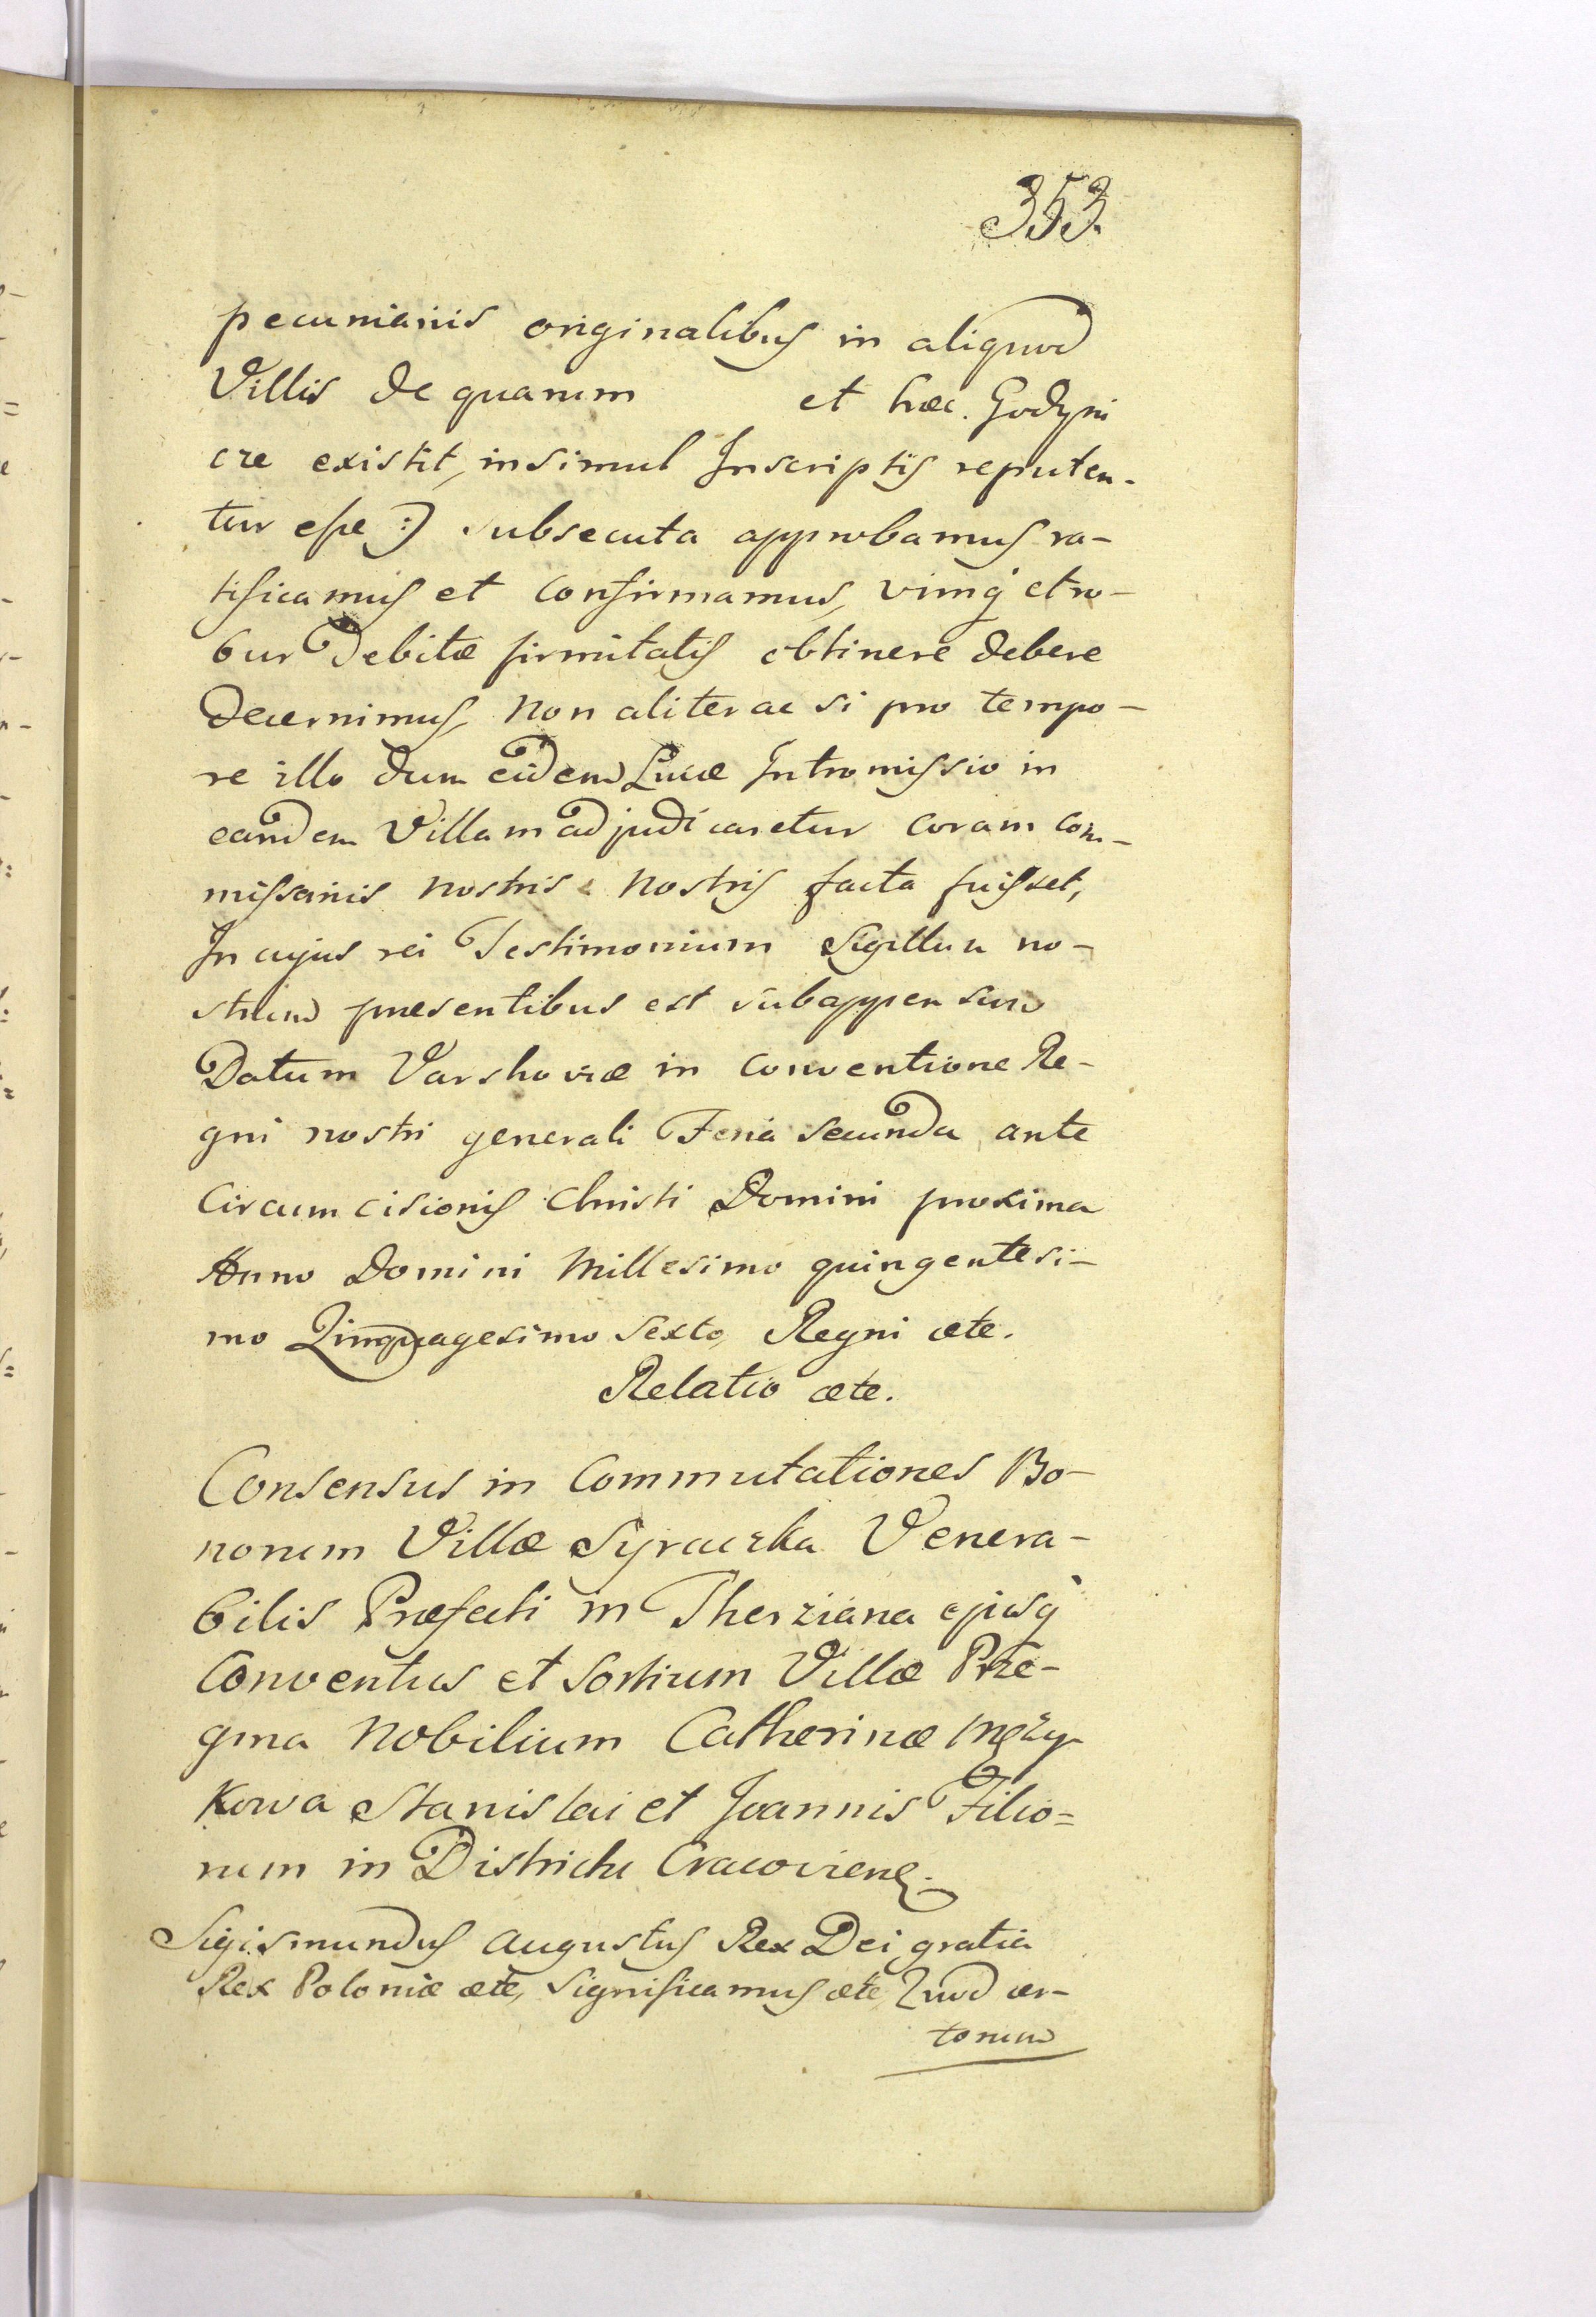 353.
pecuniariis originalibus in aliquod
Villis de quarum et hæc. Godyni
cze existit, insimul Inscriptis reputen-
tur esse :) subsecuta approbamus ra-
tificamus et Confirmamus, vimq́ et ro-
bur Debitæ firmitatis obtinere debere
Decernimus, Non aliter ac si pro tempo-
re illo dum eidem Lucæ Intromissio in
eandem Villam adjudicaretur coram Com-
missariis Nostris Nostris facta fuisset,
In cujus rei Testimonium Sigillum no-
strum præsentibus est subappensum
Datum Varshoviæ in Conventione Re-
gni nostri generali Feria Secunda ante
Circumcisionis Christi Domini proxima
Anno Domini Millesimo quingentesi-
mo Qinquagesimo Sexto, Regni ætc.
Relatio ætc.
Consensus in Commutationes Bo-
norum Villæ Syraczka Venera-
bilis Præfecti in Therziana ejusq́
Conventus et Sortium Villæ Prze-
gina Nobilium Catherinæ Męzy-
kowa Stanislai et Joannis Filio=
rum in Districtu Cracovien.
Sigismundus Augustus Rex Dei gratia
Rex Poloniæ ætc, Significamus ætc, Quod cer-
torum